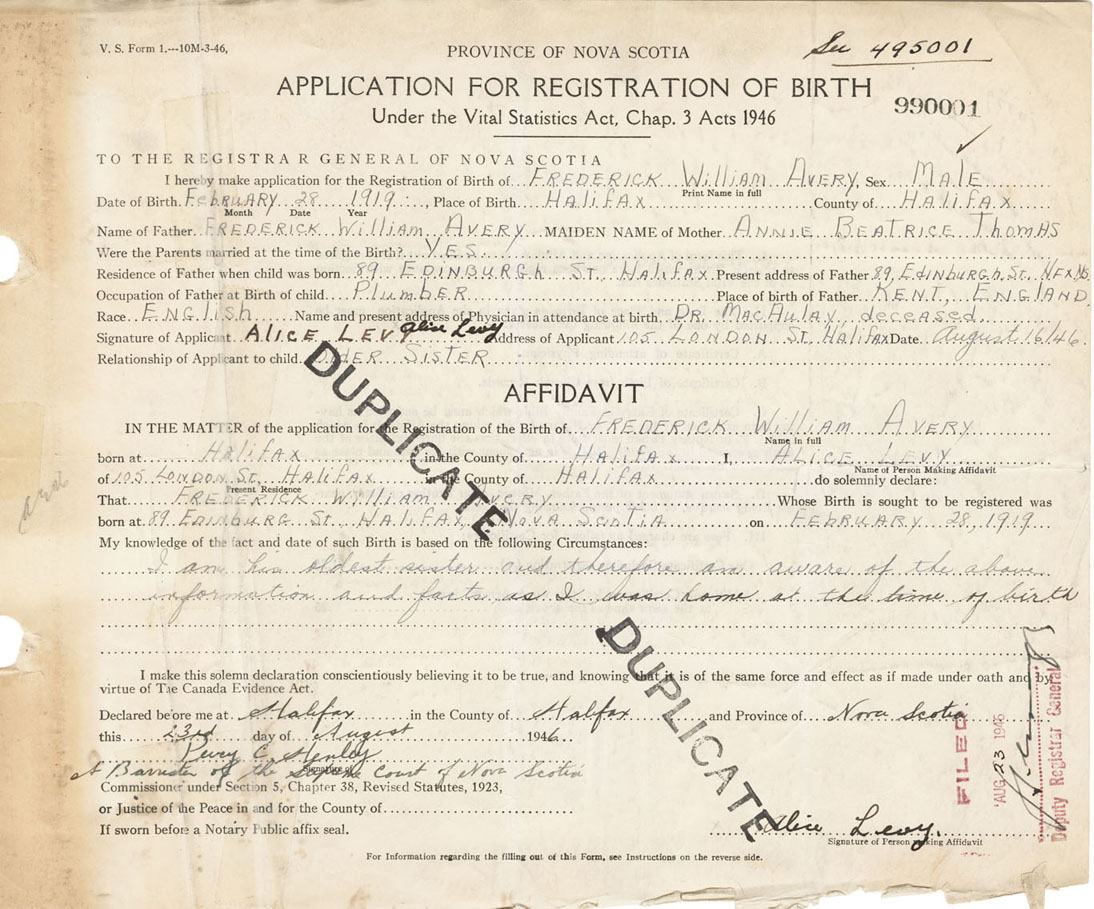 V. S. Form 1.---10M-3-46,
PROVINCE OF NOVA SCOTIA
See 495001
APPLICATION FOR REGISTRATION OF BIRTH
990001
Under the Vital Statistics Act, Chap. 3 Acts 1946
TO THE REGISTRAR GENERAL OF NOVA SCOTIA
I hereby make application for the Registration of Birth of FREDERICK William AVERY, Sex MALE
Print Name in full
Date of Birth. February 28 1919, Place of Birth Halifax County of Halifax
Month Date Year
Name of Father FREDERICK William AVERY MAIDEN NAME of Mother ANNIE BEATRICE ThomAS
Were the Parents married at the time of the Birth? YES.
Residence of Father when child was born 89, EDINBURGh ST. HaliFax. Present address of Father 89, EdinburGh. St. HFX. NS.
Occupation of Father at Birth of child PlumBER Place of birth of Father KENT, ENGLAND.
Race ENGlish Name and present address of Physician in attendance at birth DR. MacAulay deceased.
Signature of Applicant ALICE LEVY Alice Levy Address of Applicant 105 LONDON ST. Halifax Date August 16/46.
Relationship of Applicant to child. OLDER SISTER
DUPLICATE
AFFIDAVIT
IN THE MATTER of the application for the Registration of the Birth of FREDERICK William AVERY
Name in full
born at Halifax in the County of Halifax I, ALICE LEVY
Name of Person Making Affidavit
of 105 LONDON ST. Halifax in the County of Halifax do solemnly declare:
Present Residence
That FREDERICK William AVERY Whose Birth is sought to be registered was
born at 89 EDINBURG St. HaliFax, Nova Scotia on FEBRUARY 28, 1919
My knowledge of the fact and date of such Birth is based on the following Circumstances:
I am his oldest sister and therefore am aware of the above
information and facts, as I was home at the time of birth
DUPLICATE
I make this solemn declaration conscientiously believing it to be true, and knowing that it is of the same force and effect as if made under oath and by
virtue of The Canada Evidence Act.
Declared before me at Halifax in the County of Halifax and Province of Nova Scotia
this 23rd day of August 1946
Percy C. Henley
Signature of
A Barrister of the Supreme Court of Nova Scotia
Commissioner under Section 5, Chapter 38, Revised Statutes, 1923,
or Justice of the Peace in and for the County of
If sworn before a Notary Public affix seal.
Alice Levy.
Signature of Person making Affidavit
For Information regarding the filling out of this Form, see Instructions on the reverse side.
FILED
AUG 23 1946
Deputy Registrar General